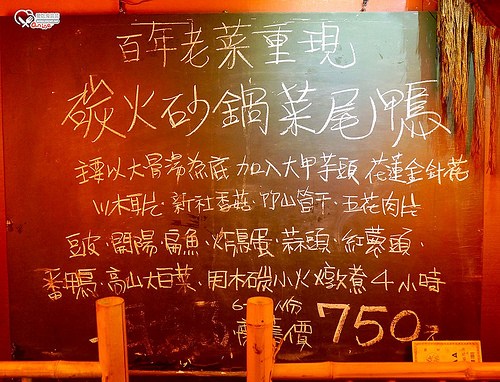 百年老菜重現
碳火砂鍋菜尾鴨
主要以大骨湯為底 加入大甲芋頭 花蓮金針花
川木耳片·新社香菇·竹山筍干·五花肉片
豆皮·開陽·扁魚·炸蛋·蒜頭·紅蔥頭·
番鴨·高山大白菜·用木碳小火燉煮4小時
6-人份
價750元